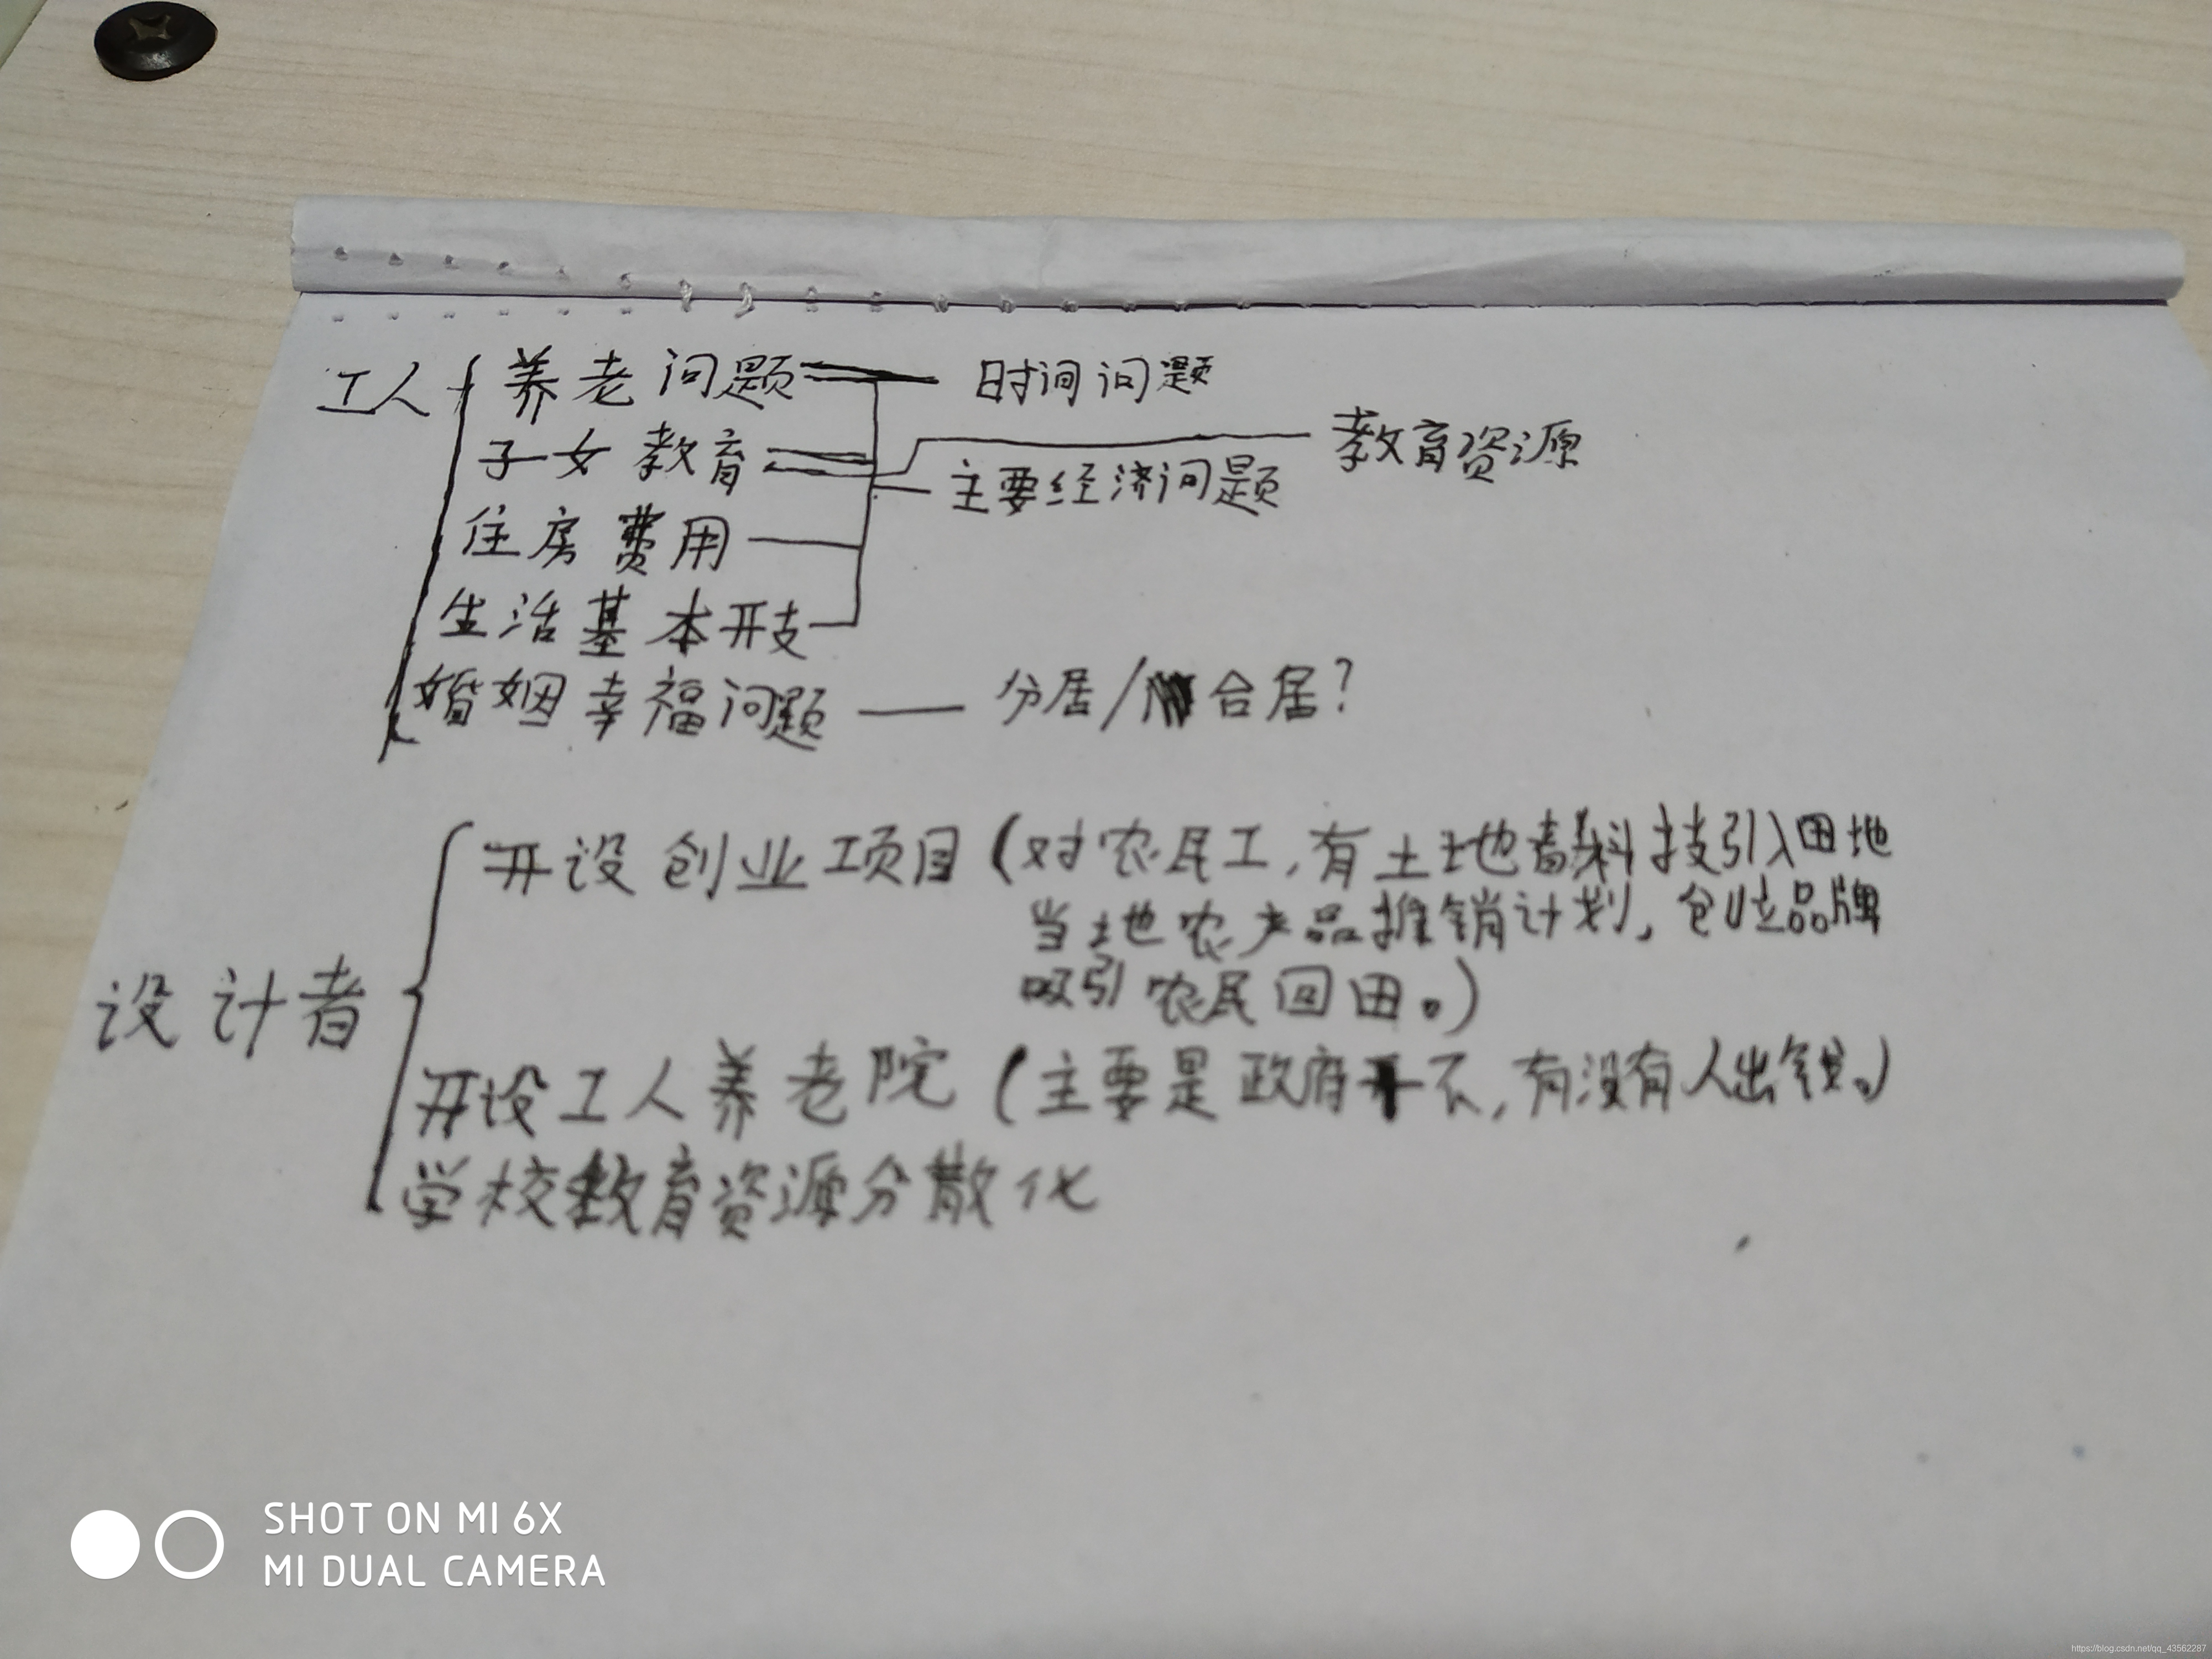 工人 养老问题 时间问题
子女教育 教育资源
主要经济问题
住房费用
生活基本开支
婚姻幸福问题 — 分居/合居?
开设创业项目(对农民工,有土地科技引入田地
当地农产品推销计划,创造品牌
吸引农民回田。)
设计者
开设工人养老院(主要是政府不,有没有人出钱。)
学校教育资源分散化
SHOT ON MI 6X
MI DUAL CAMERA
https://blog.csdn.net/qq_43562287